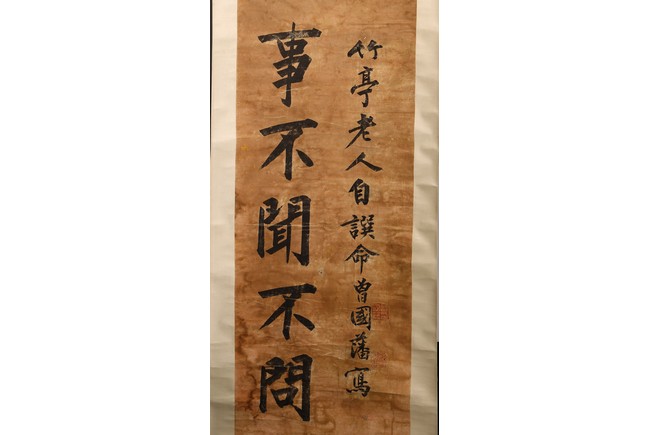 竹亭老人自譔命曾國藩寫
事不聞不問